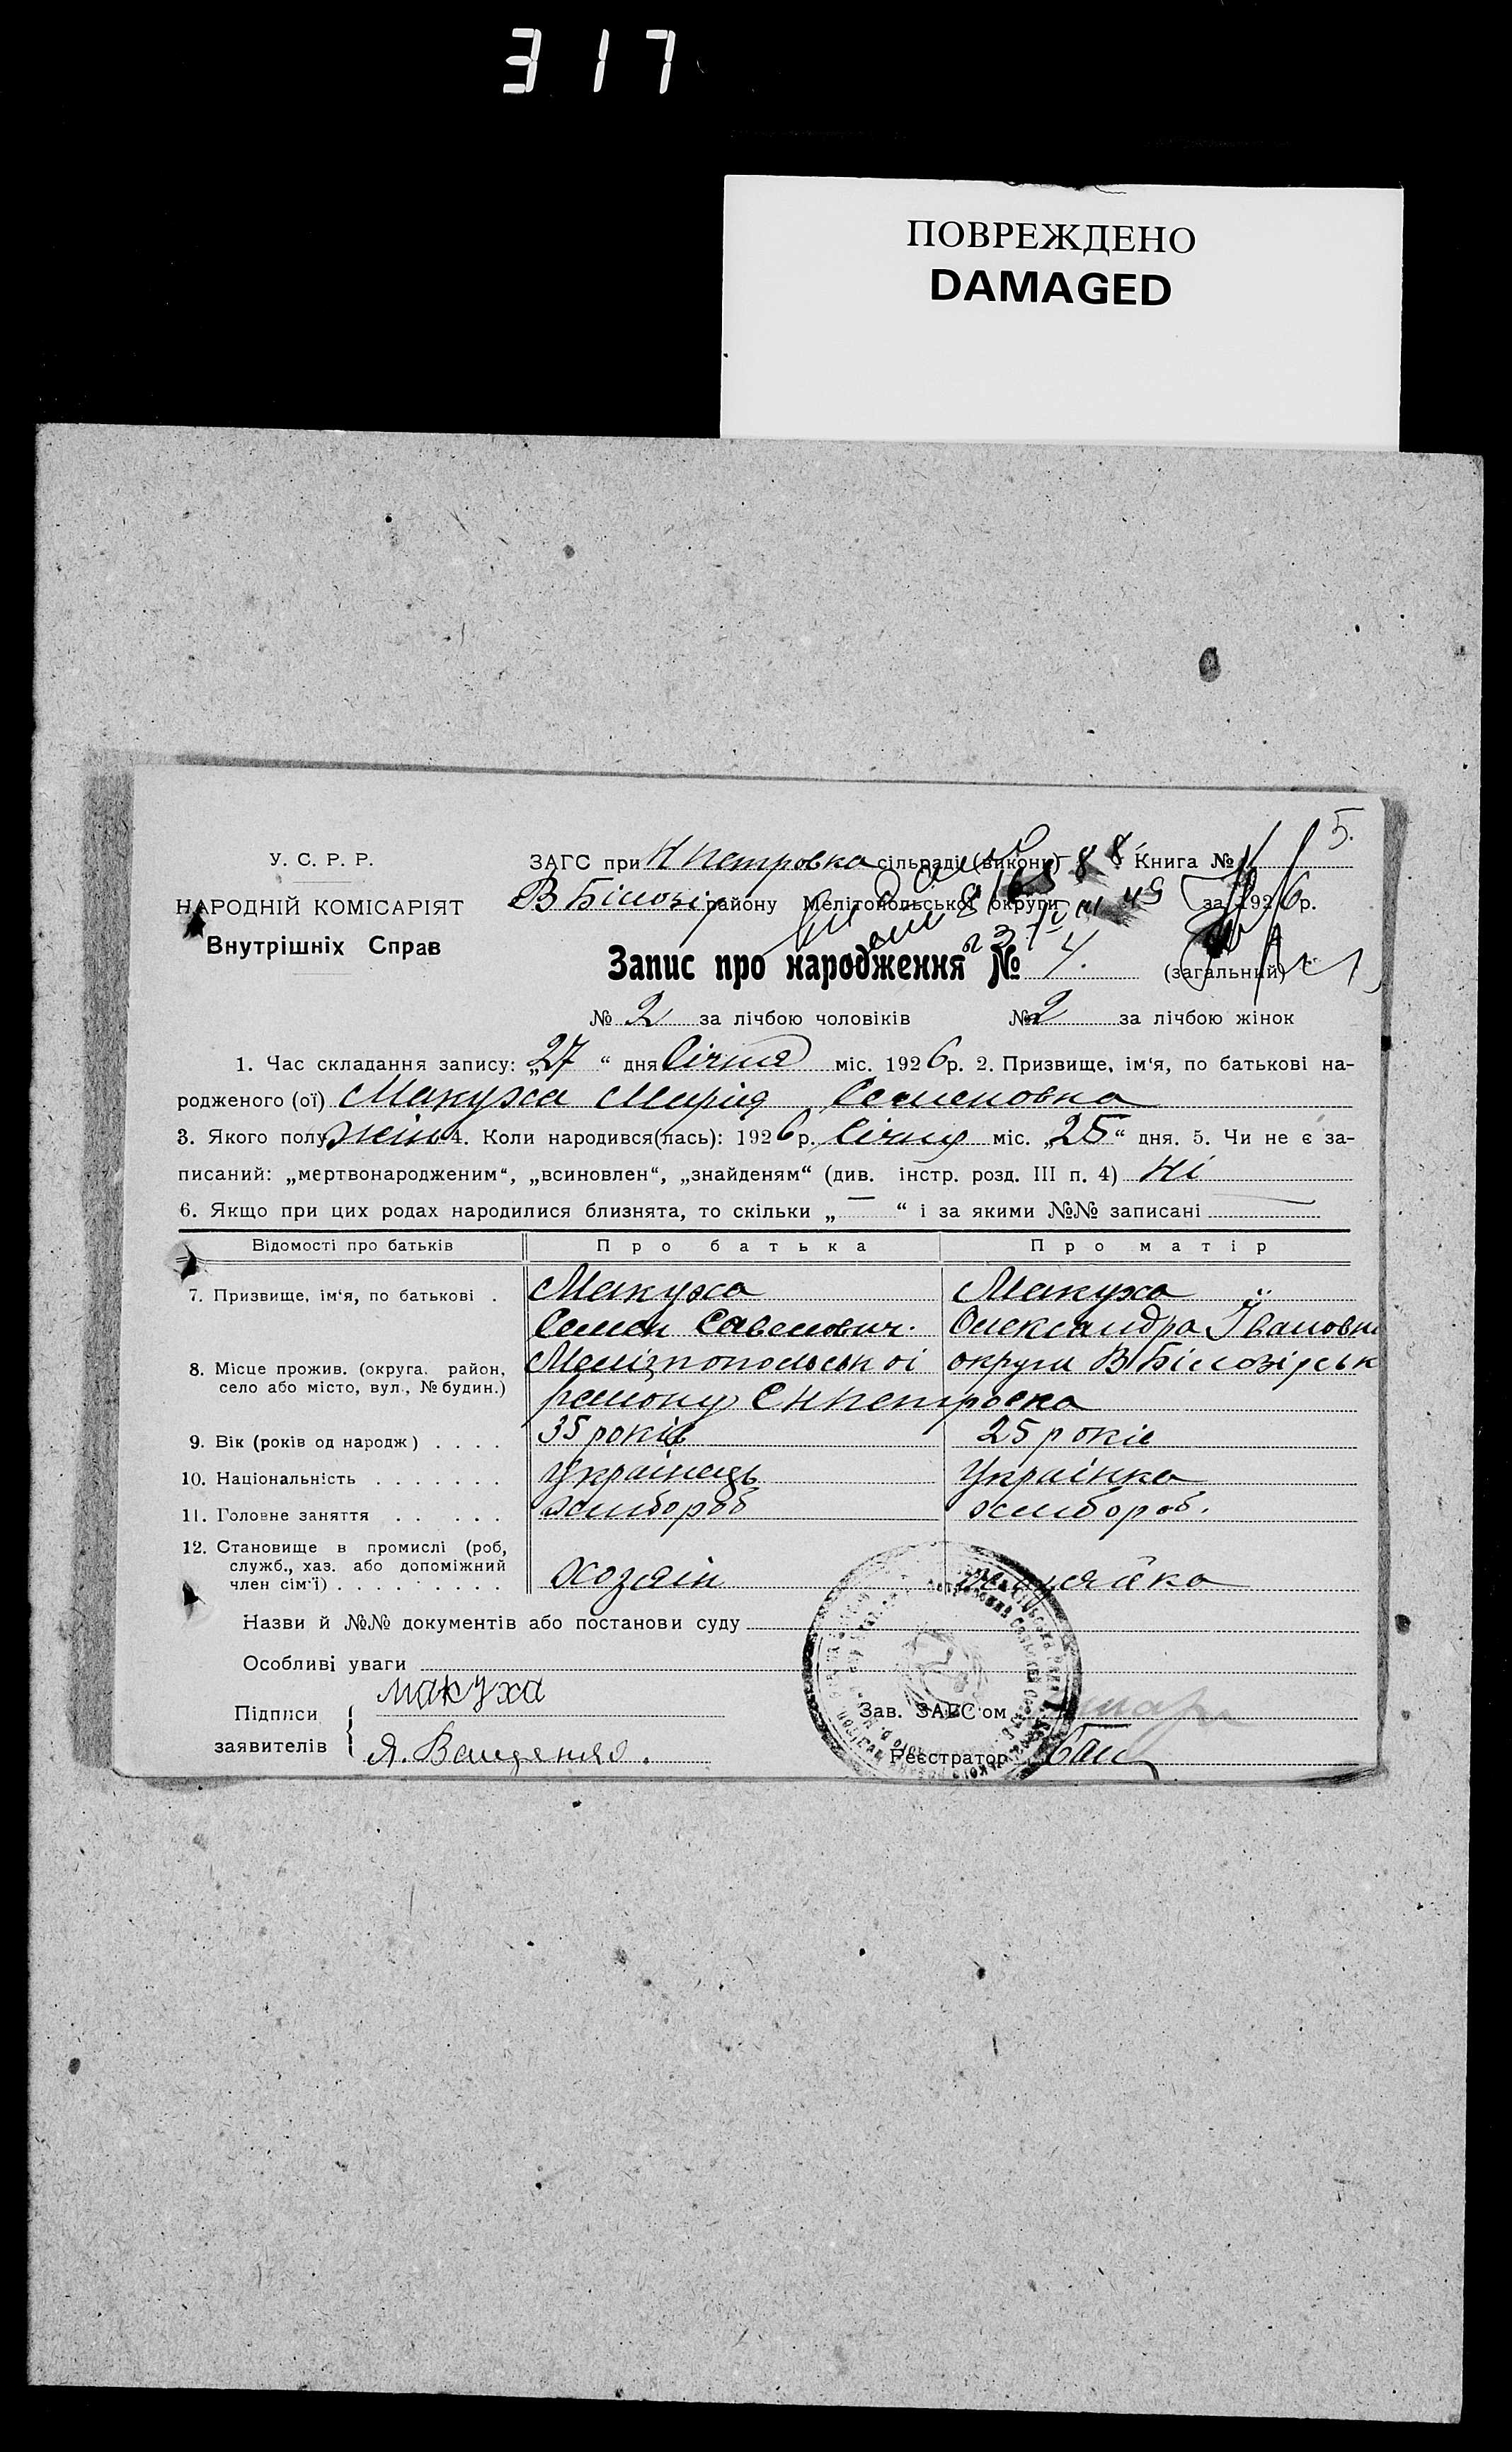 317
ПОВРЕЖДЕНО
DAMAGED
5.
У. С. Р. Р.
НАРОДНІЙ КОМІСАРІЯТ
Внутрішніх Справ
ЗАГС при Н Петровка сільраді (виконк) 88 Книга №
В Білозір району Мелітопольської округи за 1926 р.
Запис про народження № 4. (загальний)
№ 2 за лічбою чоловіків № 2 за лічбою жінок
1. Час складання запису: „27“ дня Січня міс. 1926 р. 2. Призвище, ім‘я, по батькові на-
родженого (ої) Макуха Марія Семеновна
3. Якого полу жін 4. Коли народився(лась): 1926 р. Січня міс. „25“ дня. 5. Чи не є за-
писаний: „мертвонародженим“, „всиновлен“, „знайденям“ (див. інстр. розд. III п. 4) Ні
6. Якщо при цих родах народилися близнята, то скільки „—“ і за якими №№ записані
Відомості про батьків Про батька Про матір
7. Призвище, ім‘я, по батькові . Макуха Макуха
Семен Савелович. Олександра Івановн
8. Місце прожив. (округа, район,
село або місто, вул., № будин.)
Мелізтопольськоі округи В Білозірськ
району С Н Петровка
9. Вік (років од народж) . . . . 35 років 25 років
10. Національність . . . . . . . Українець Українка
11. Головне заняття . . . . . хлибороб хлибороб.
12. Становище в промислі (роб,
служб., хаз. або допоміжний
член сім‘ї) . . . . . . . . . хозяін хозяйка
Назви й №№ документів або постанови суду
Особливі уваги
Підписи
заявителів
макуха
Я. Ващенко.
Зав. ЗАГС‘ом
Реєстратор